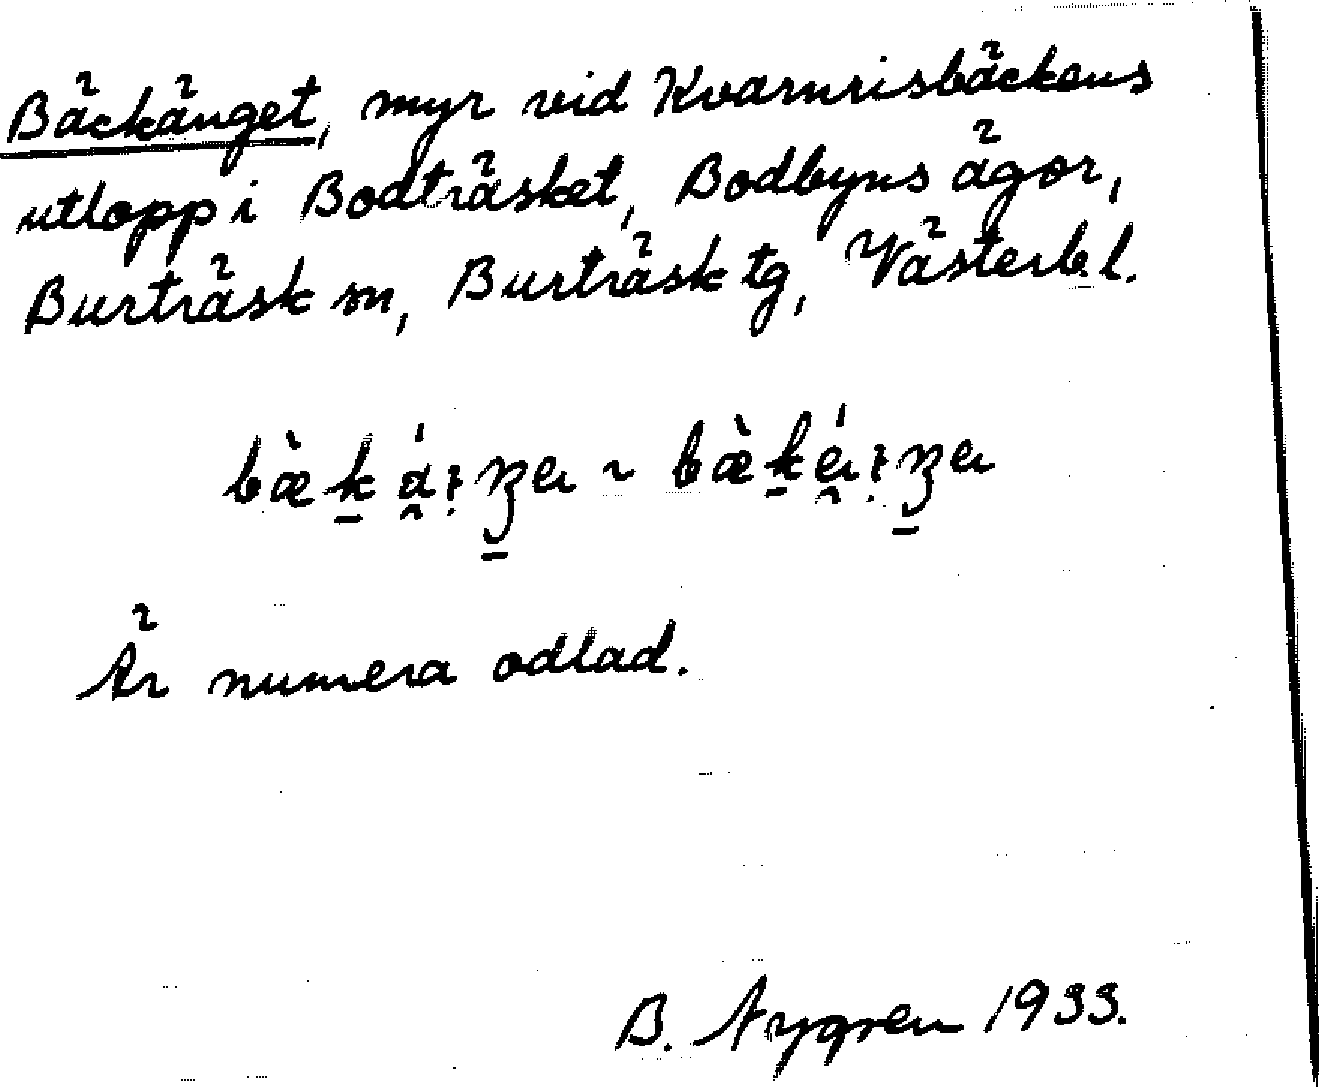 Bäckänget, myr vid Kvarnrisbäckens
utlopp i Bodträsket, Bodbyns ägor,
Burträsk sn, Burträsk tg, Västerb. l.
Är numera odlad.
B. Nygren 1933.